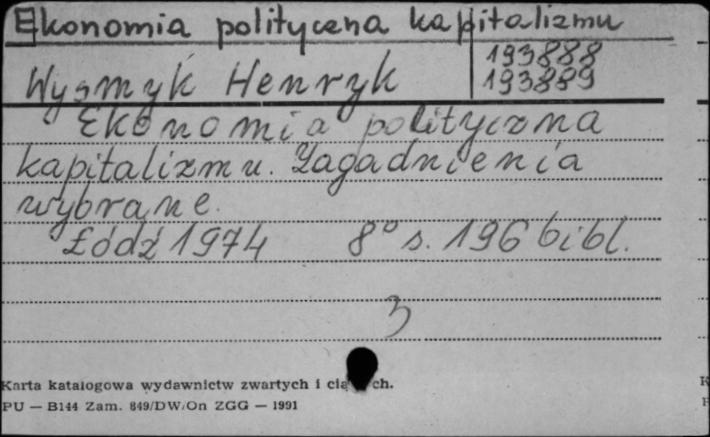 Ekonomia polityczna kapitalizmu
193888
Wysmyk Henryk 193889
Ekonomia polityczna
kapitalizmu. Zagadnienia
wybrane.
Łódź 1974 8° s. 196 bibl.
3
Karta katalogowa wydawnictw zwartych i ch.
PU — B144 Zam. 849/DW/On ZGG — 1991